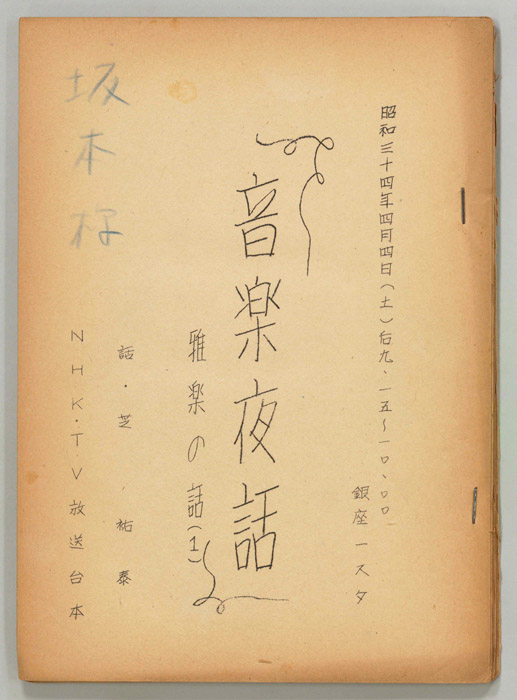 昭和三十四年四月四日(土)后九、一五〜一〇、〇〇
銀座一スタ
音楽夜話
雅楽の話(1)
話・芝祐泰
NHK・TV放送台本
坂本様